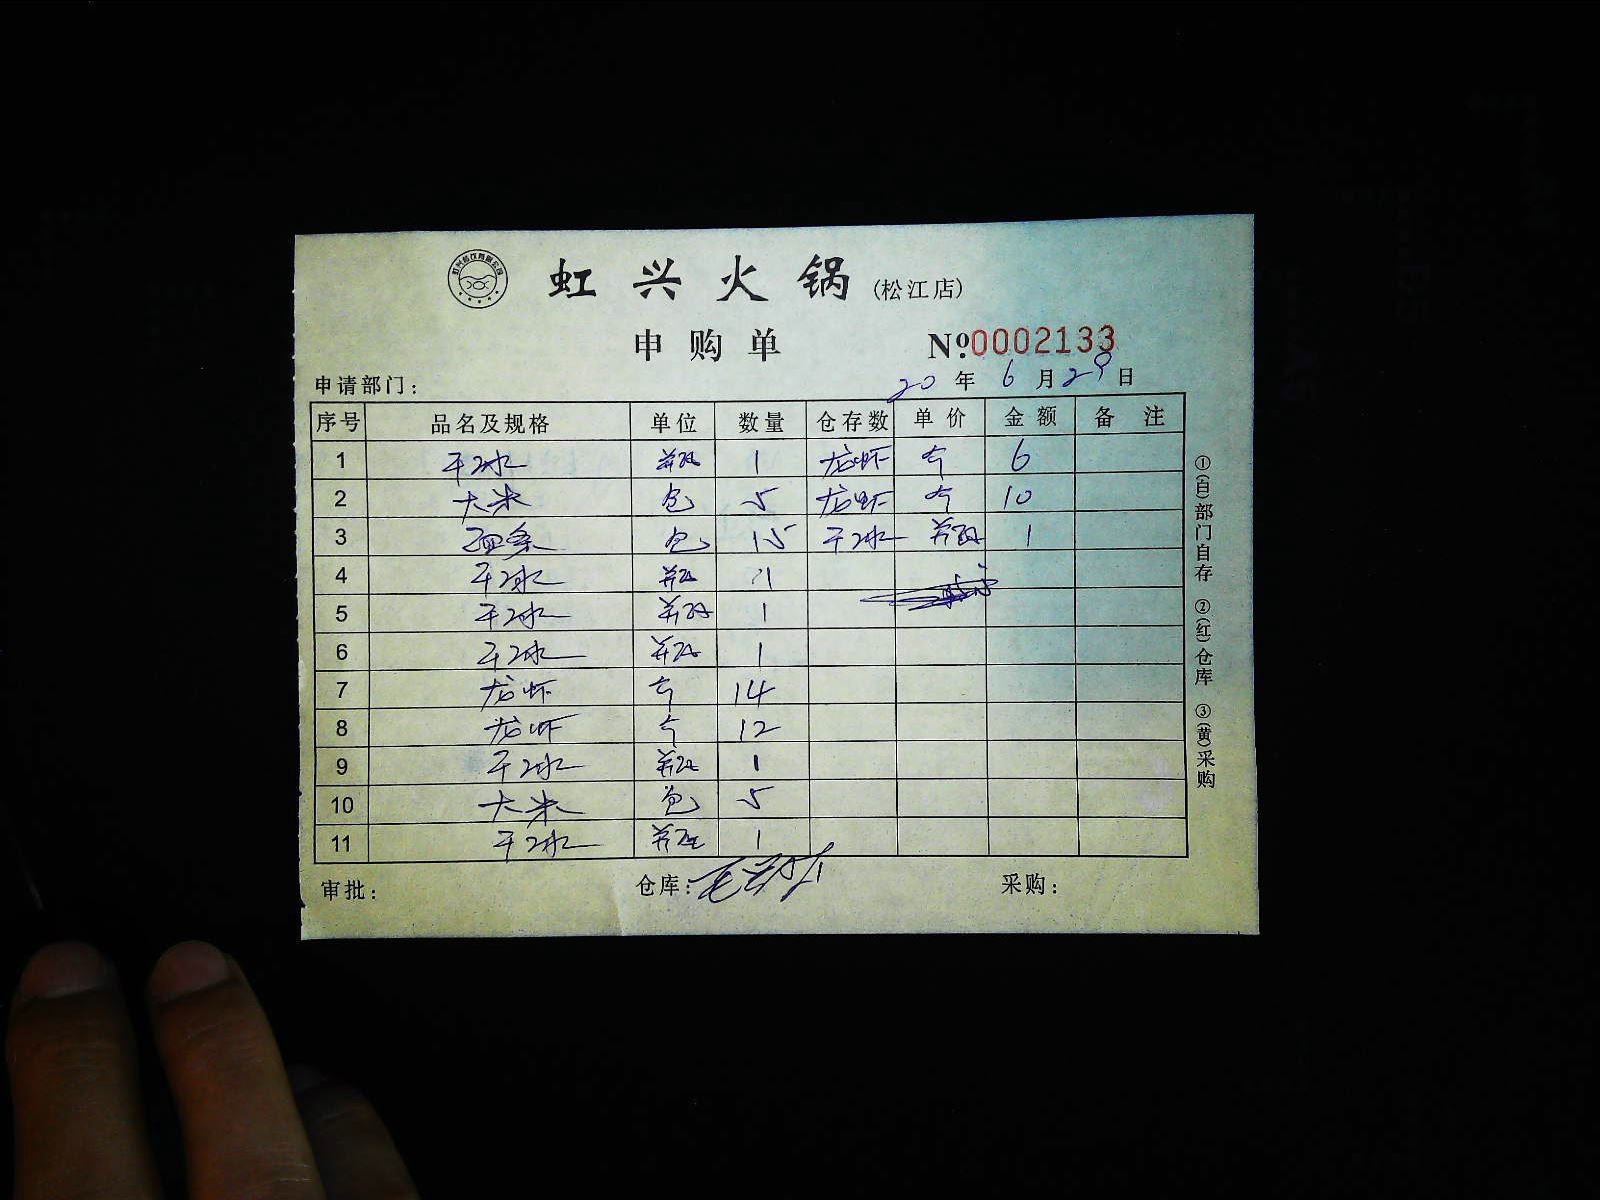 虹兴火锅(松江店)
申购单 Nº0002133
申请部门: 20年6月29日
序号 品名及规格 单位 数量 仓存数 单价 金额 备注
1 干冰 瓶 1 龙虾 个 6
2 大米 包 5 龙虾 个 10
3 面条 包 15 干冰 瓶 1
4 干冰 瓶 1
5 干冰 瓶 1
6 干冰 瓶 1
7 龙虾 个 14
8 龙虾 个 12
9 干冰 瓶 1
10 大米 包 5
11 干冰 瓶 1
审批: 仓库: 采购:
①(白)部门自存 ②(红)仓库 ③(黄)采购